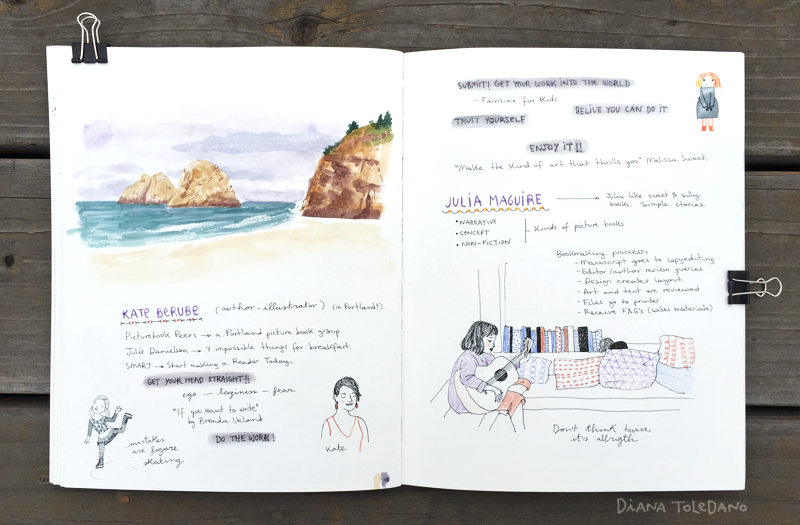 KATE BERUBE (author-illustrator) (in Portland!)
Picturebook Peers → a Portland picture book group
Julie Danielson → 7 impossible things for breakfast.
SMART → Start making a Reader Today.
GET YOUR HEAD STRAIGHT!!
ego — laziness — fear
"If you want to write"
by Brenda Ueland
DO THE WORK!
mistakes
are figure
skating
Kate
SUBMIT! GET YOUR WORK INTO THE WORLD
- Fanzine for Kids.
BELIVE YOU CAN DO IT
TRUST YOURSELF
ENJOY IT!!
"Make the kind of art that thrills you" Melissa Sweet.
JULIA MAGUIRE → Julia like sweet & silly
books. Simple stories.
• NARRATIVE
• CONCEPT
• NON-FICTION
Kinds of picture books
Bookmaking process:
- Manuscript goes to copyediting
- Editor/author review queries
- Design creates layout
- Art and text are reviewed
- Files go to printer
- Receive F&G's (sales materials)
Don't think twice,
it's allrigth.
DIANA TOLEDANO